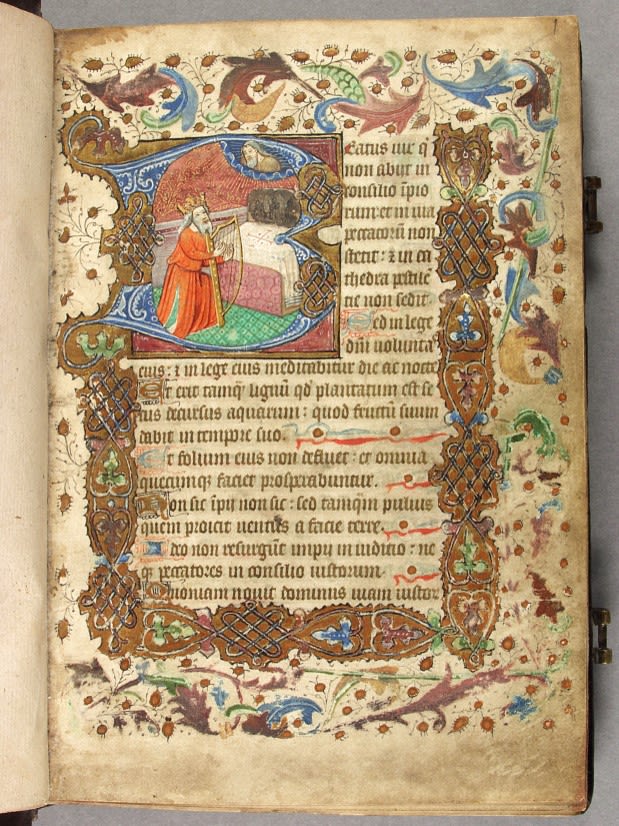 Beatus uir q̄
non abijt in
consilio īpio
rum: et in uia
peccatorū non
stetit: ⁊ in ca
thedra pestilē
tie non sedit.
Sed in lege
dn̄i uolunta
eius: ⁊ in lege eius meditabitur die ac nocte
Et erit tamq̄ lignū qd̓ plantatum est se
cus decursus aquarum: quod fructū suum
dabit in tempore suo.
Et folium eius non defluet: et omnia
quecumq̄ faciet prosperabuntur.
Non sic īpij non sic: sed tamq̄m puluis
quem proicit uentus a facie terre.
Ideo non resurgūt impij in iudicio: ne
q̄ peccatores in consilio iustorum.
Quoniam nouit dominus uiam iustor